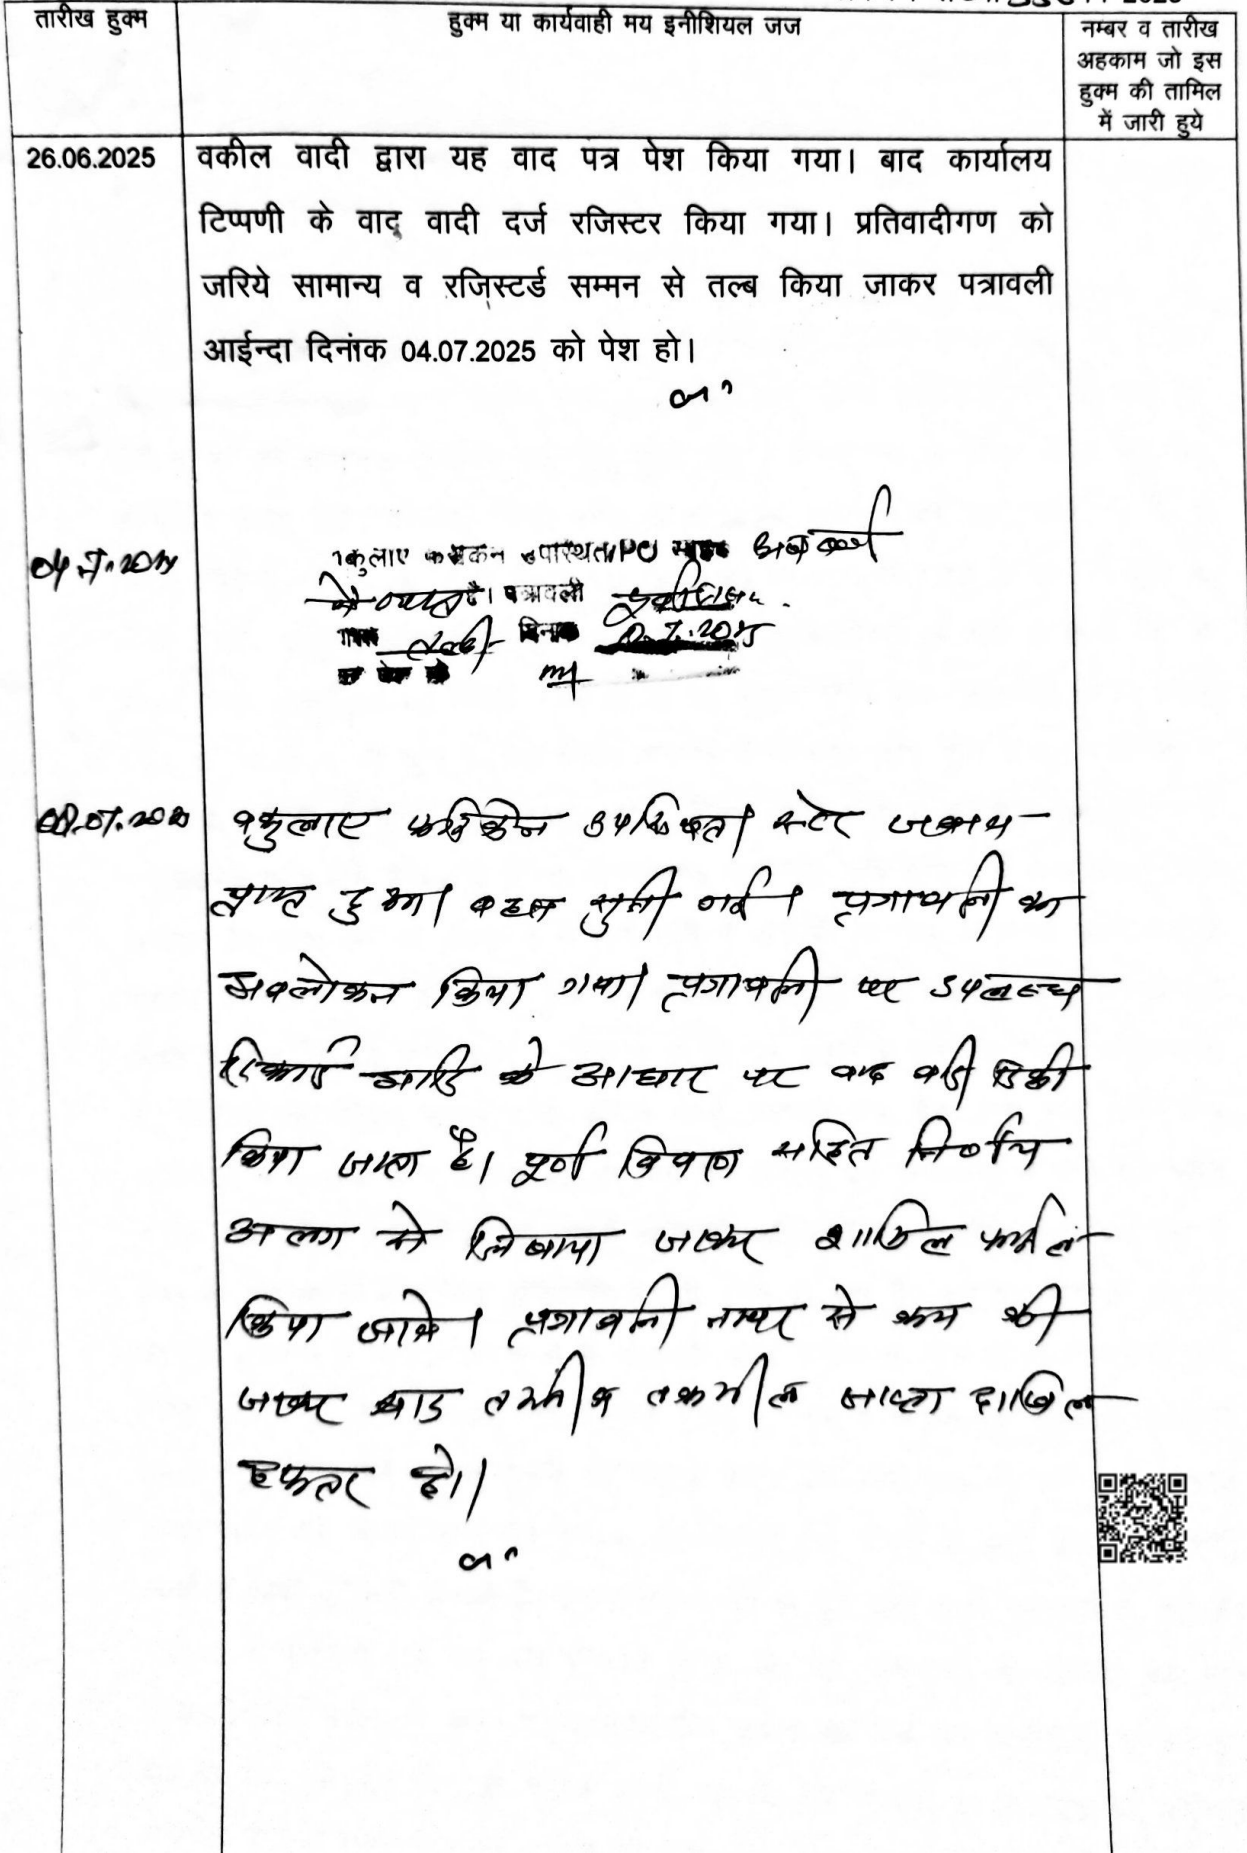 2025
तारीख हुक्म
हुक्म या कार्यवाही मय इनीशियल जज
नम्बर व तारीख
अहकाम जो इस
हुक्म की तामिल
में जारी हुये
26.06.2025
वकील वादी द्वारा यह वाद पत्र पेश किया गया। बाद कार्यालय
टिप्पणी के वाद वादी दर्ज रजिस्टर किया गया। प्रतिवादीगण को
जरिये सामान्य व रजिस्टर्ड सम्मन से तल्ब किया जाकर पत्रावली
आईन्दा दिनांक 04.07.2025 को पेश हो।
उपस्थित। PO अन्य कार्य
है। पत्रावली
दिनांक
वकुलाए फरिकेन उपस्थित। स्टेट जवाब
प्राप्त हुआ। बहस सुनी गई। पत्रावली का
अवलोकन किया गया। पत्रावली पर उपलब्ध
रिकार्ड आदि के आधार पर वाद वादी डिक्री
किया जाता है। पूर्ण विवरण सहित निर्णय
अलग से लिखाया जाकर शामिल फाईल
किया जावे। पत्रावली नम्बर से कम की
जाकर बाद तकमील जाप्ता दाखिल
दफ्तर हो।